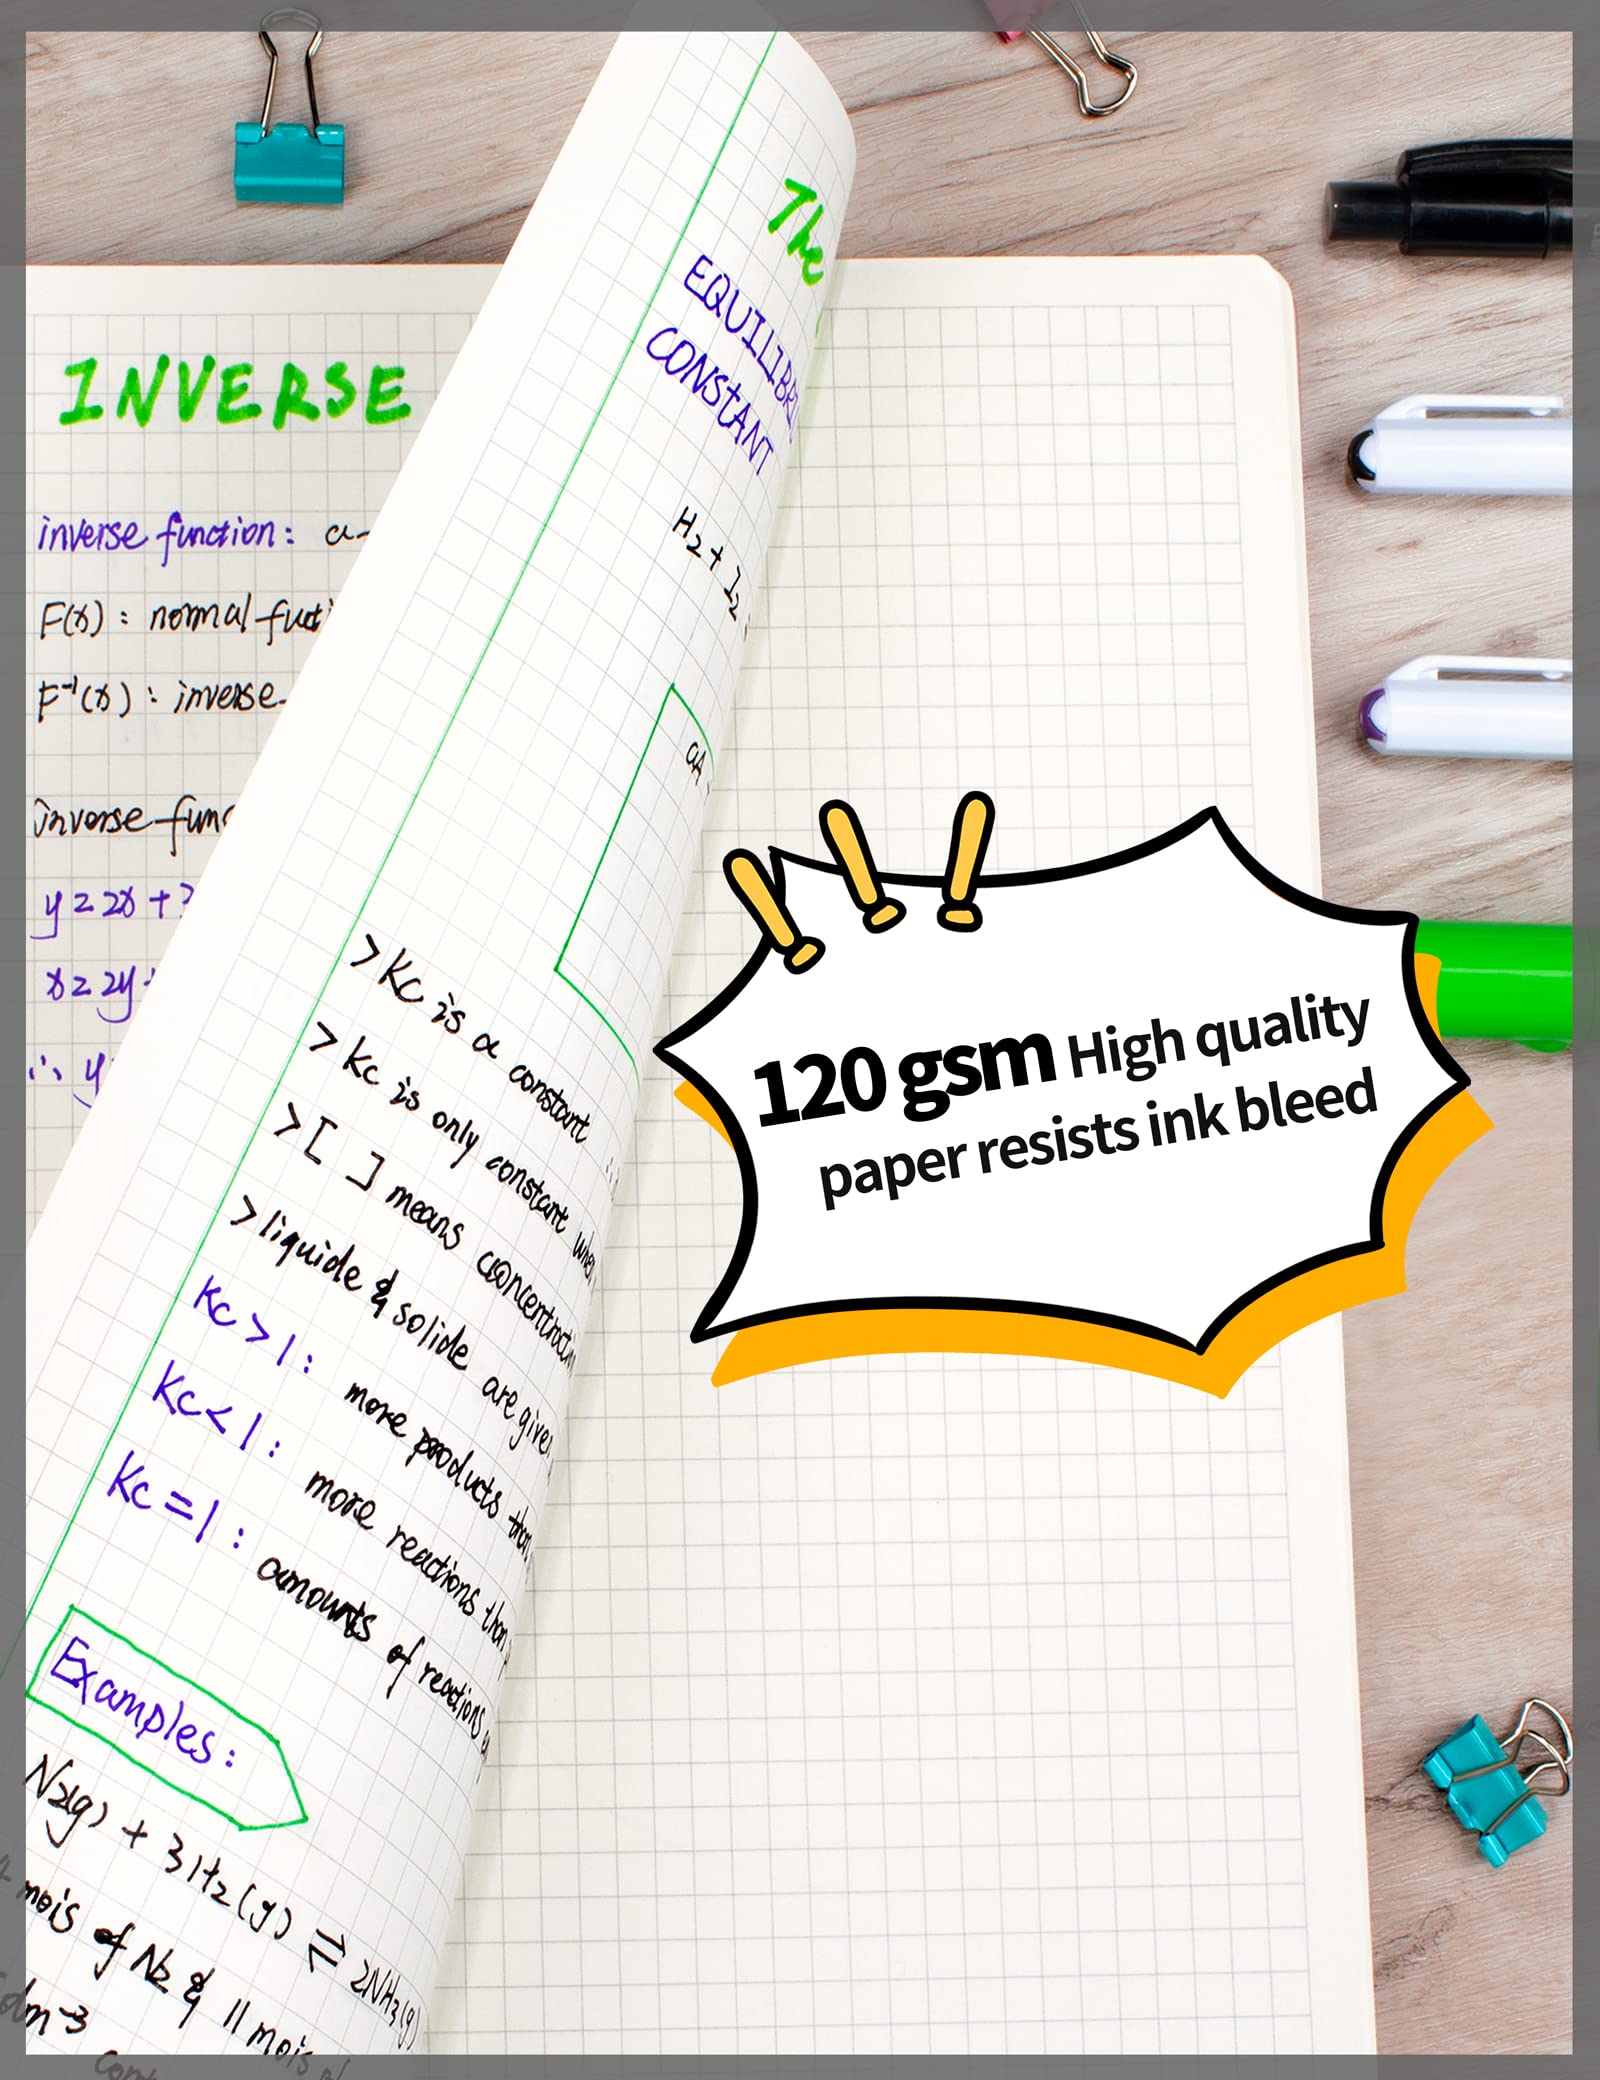 INVERSE
inverse function: a
F(x): normal fucti
F⁻¹(x): inverse
inverse func
y = 2x + 3
x = 2y
∴ y
The
EQUILIBRI
CONSTANT
H₂ + I₂
aA
> Kc is a constant
> Kc is only constant when
> [ ] means concentrati
> liquide & solide are given
Kc > 1: more products than
Kc < 1: more reactions than
Kc = 1: amounts of reactions
Examples:
N₂(g) + 3H₂(g) ⇌ 2NH₃(g)
mois of N₂ & 11 mois of
dm-3
cont
120 gsm High quality
paper resists ink bleed